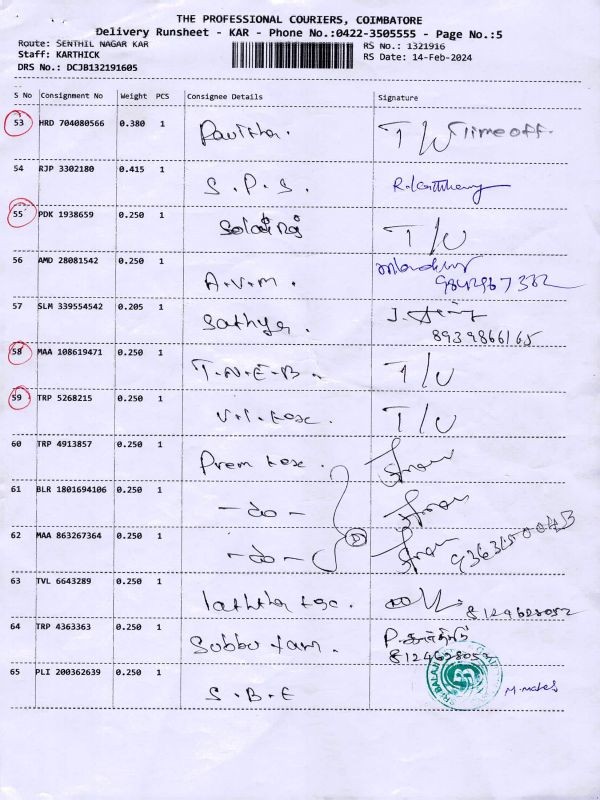 THE PROFESSIONAL COURIERS, COIMBATORE
Delivery Runsheet - KAR - Phone No.:0422-3505555 - Page No.:5
Route: SENTHIL NAGAR KAR
RS No.: 1321916
Staff: KARTHICK
RS Date: 14-Feb-2024
DRS No.: DCJB132191605
S No Consignment No Weight PCS Consignee Details Signature
53 HRD 704080566 0.380 1 Pavithra. T/U Time off.
54 RJP 3302180 0.415 1 S.P.S.
55 PDK 1938659 0.250 1 T/U
56 AMD 28081542 0.250 1 A.V.M.
9842967332
57 SLM 339554542 0.205 1 Sathya. J.
8939866165
58 MAA 108619471 0.250 1 T.N.E.B. T/U
59 TRP 5268215 0.250 1 V.I. tex. T/U
60 TRP 4913857 0.250 1 Prem tex.
61 BLR 1801694106 0.250 1 - do -
62 MAA 863267364 0.250 1 - do - D
63 TVL 6643289 0.250 1 8124628052
64 TRP 4363363 0.250 1 Subbu P.
8124628052
65 PLI 200362639 0.250 1 S.B.E